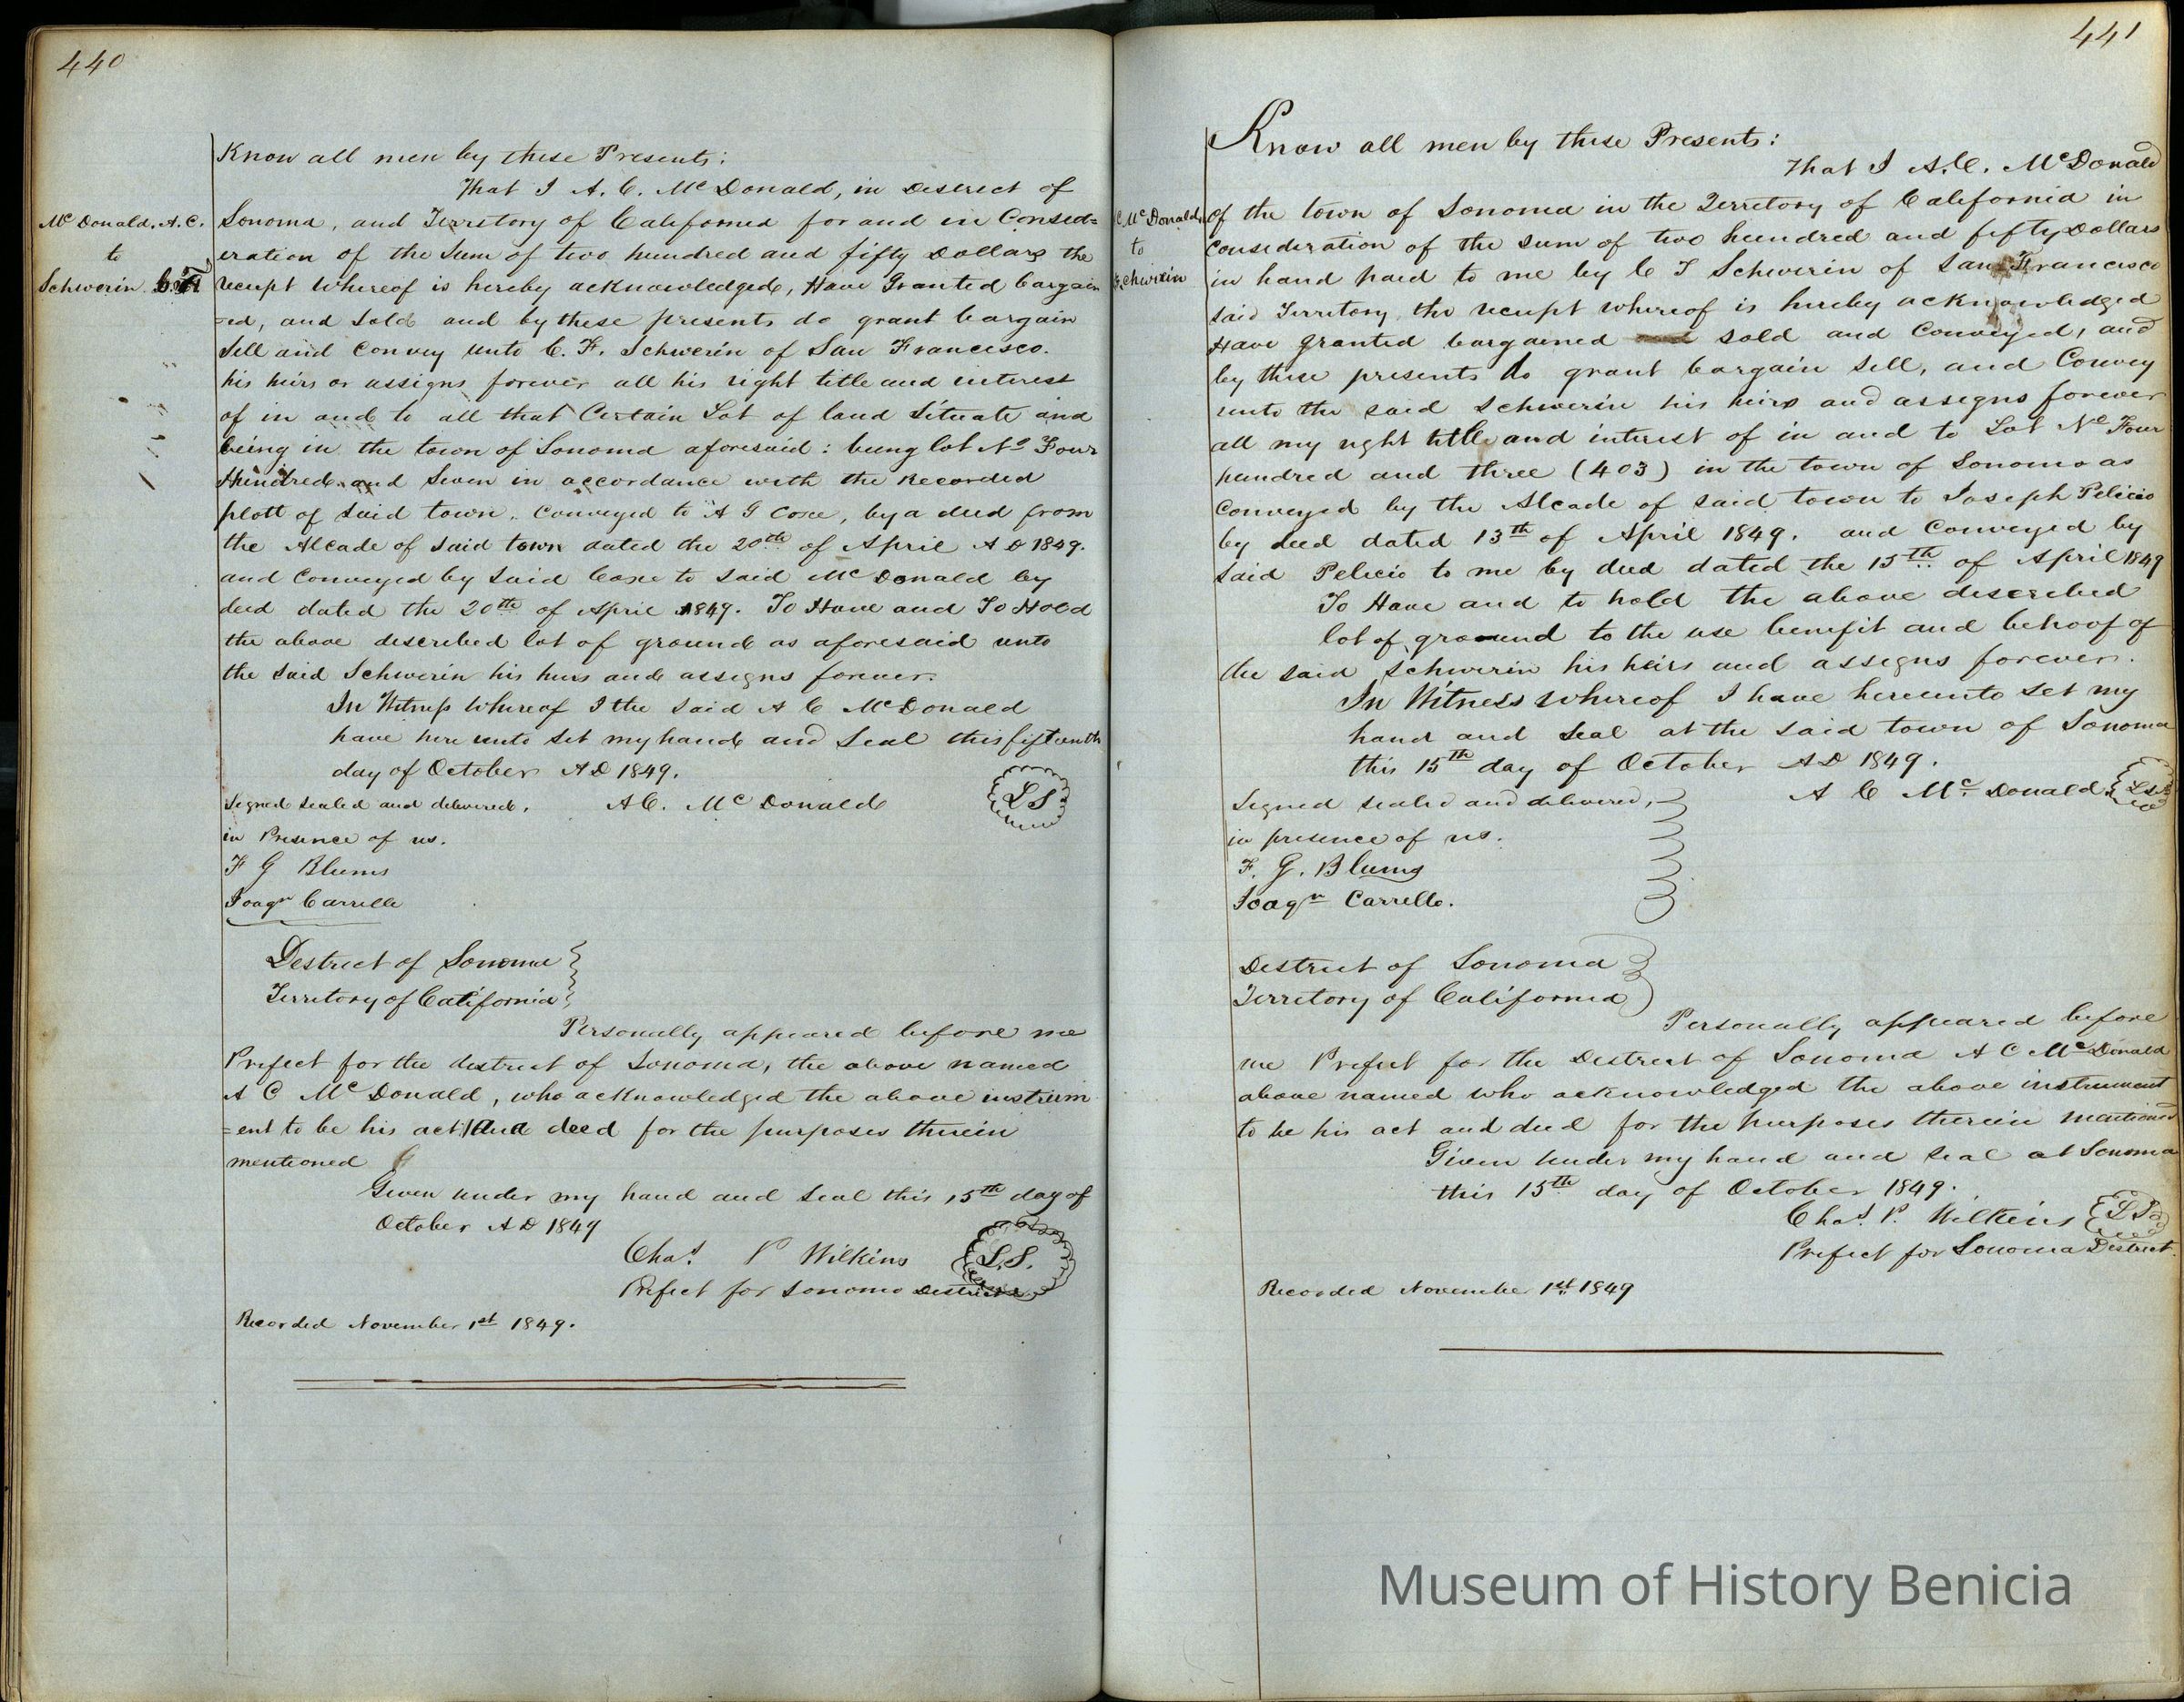 440
Know all men by these Presents:
That I A. C. McDonald, in District of
McDonald, A. C.
to
Schwerin
Sonoma, and Territory of California for and in Consid=
eration of the Sum of two hundred and fifty Dollars the
receipt whereof is hereby acknowledged, Have Granted bargain
=ed, and Sold and by these presents do grant bargain
Sell and Convey unto C. F. Schwerin of San Francisco.
his heirs or assigns forever all his right title and interest
of in and to all that Certain Lot of land Situate and
being in the town of Sonoma aforesaid: being lot No Four
Hundred and Seven in accordance with the Recorded
plott of said town. Conveyed to A G Coxe, by a deed from
the Alcade of said town dated the 20th of April A D 1849.
and Conveyed by said Coxe to said McDonald by
deed dated the 20th of April 1849. To Have and To Hold
the above described lot of ground as aforesaid unto
the said Schwerin his heirs and assigns forever.
In Witness Whereof I the said A C McDonald
have here unto set my hand and Seal this fifteenth
day of October A D 1849.
Signed sealed and delivered, A C. McDonald LS
in Presence of us.
F G Blums
Joaqn Carrillo
District of Sonoma
Territory of California
Personally appeared before me
Prefect for the district of Sonoma, the above named
A C McDonald, who acknowledged the above instrum
=ent to be his act and deed for the purposes therein
mentioned
Given under my hand and Seal this 15th day of
October A D 1849
Chas P Wilkins L.S.
Prefect for Sonoma District
Recorded November 1st 1849.
441
Know all men by these Presents:
That I A. C. McDonald
C McDonald
to
Schwerin
of the town of Sonoma in the Territory of California in
Consideration of the sum of two hundred and fifty Dollars
in hand paid to me by C F Schwerin of San Francisco
said Territory, the receipt whereof is hereby acknowledged
Have granted bargained sold and Conveyed, and
by these presents do grant bargain sell, and Convey
unto the said Schwerin his heirs and assigns forever
all my right title and interest of in and to Lot No Four
hundred and three (403) in the town of Sonoma as
Conveyed by the Alcade of said town to Joseph Pelicio
by deed dated 13th of April 1849. and Conveyed by
said Pelicio to me by deed dated the 15th of April 1849
To Have and to hold the above described
lot of ground to the use benefit and behoof of
the said Schwerin his heirs and assigns forever.
In Witness whereof I have hereunto set my
hand and seal at the said town of Sonoma
this 15th day of October A D 1849.
A C Mc Donald LS
Signed sealed and delivered,
in presence of us.
F. G. Blums
Joaqn Carrillo.
District of Sonoma
Territory of California
Personally appeared before
me Prefect for the District of Sonoma A C McDonald
above named who acknowledged the above instrument
to be his act and deed for the purposes therein mentioned
Given under my hand and seal at Sonoma
this 15th day of October 1849.
Chas. P. Wilkins LS
Prefect for Sonoma District.
Recorded November 1st 1849
Museum of History Benicia